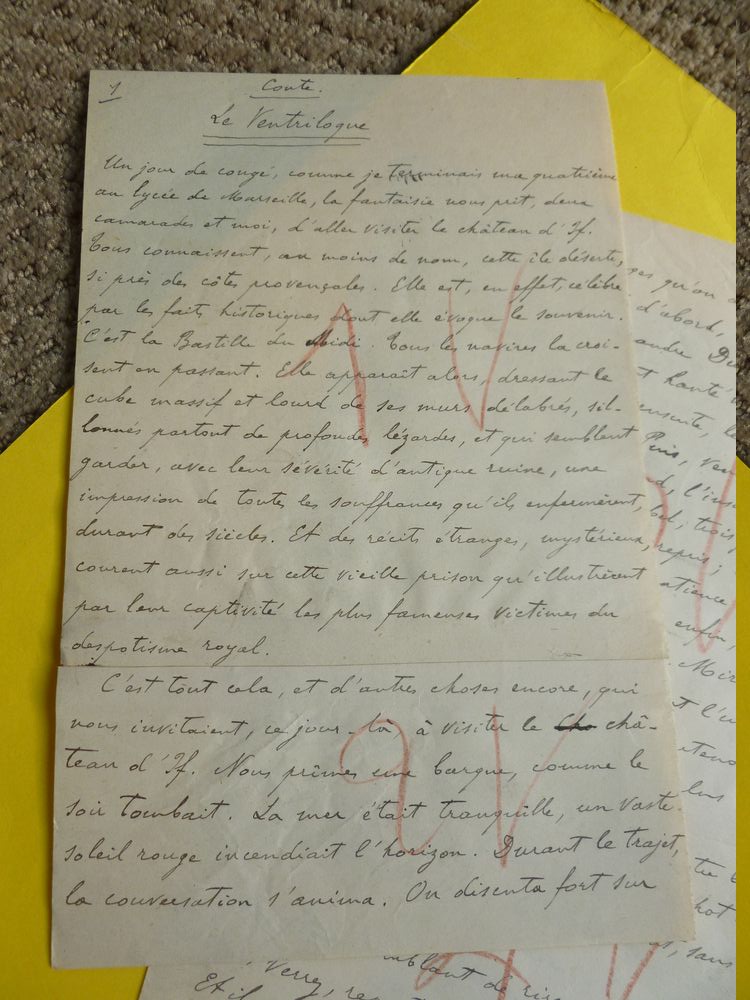 1
Conte.
Le Ventriloque
Un jour de congé, comme je terminais ma quatrième
au lycée de Marseille, la fantaisie nous prit, deux
camarades et moi, d'aller visiter le château d'If.
Tous connaissent, au moins de nom, cette île déserte,
si près des côtes provençales. Elle est, en effet, célèbre
par les faits historiques dont elle évoque le souvenir.
C'est la Bastille du Midi. Tous les navires la croi-
sent en passant. Elle apparaît alors, dressant le
cube massif et lourd de ses murs délabrés, sil-
lonnés partout de profondes lézardes, et qui semblent
garder, avec leur sévérité d'antique ruine, une
impression de toutes les souffrances qu'ils enfermèrent,
durant des siècles. Et des récits étranges, mystérieux,
courent aussi sur cette vieille prison qu'illustrèrent
par leur captivité les plus fameuses victimes du
despotisme royal.
1 V
C'est tout cela, et d'autres choses encore, qui
nous invitaient, ce jour-là, à visiter le châ-
teau d'If. Nous prîmes une barque, comme le
soir tombait. La mer était tranquille, un vaste
soleil rouge incendiait l'horizon. Durant le trajet,
la conversation s'anima. On discuta fort sur
2 V
qu'on
d'abord,
hanté
ensuite,
Puis,
trois,
repris;
enfin,
sans